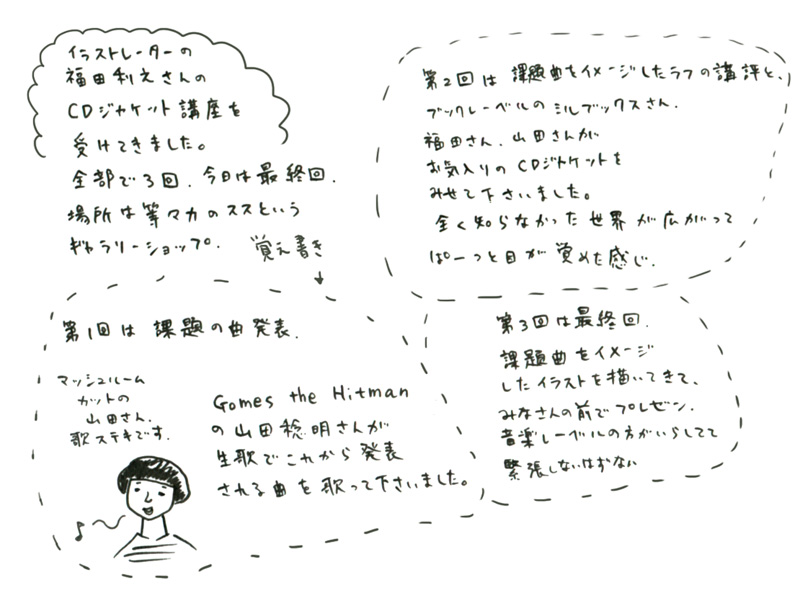 イラストレーターの
福田利之さんの
CDジャケット講座を
受けてきました。
全部で3回、今日は最終回.
場所は等々力のススという
ギャラリーショップ.
覚え書き
第1回は 課題の曲発表.
マッシュルーム
カットの
山田さん.
歌ステキです.
Gomes the Hitman
の山田稔明さんが
生歌でこれから発表
される曲を歌って下さいました。
第2回は 課題曲をイメージしたラフの講評と、
ブックレーベルのミルブックスさん.
福田さん、山田さんが
お気入りのCDジャケットを
みせて下さいました。
全く知らなかった世界が広がって
ぱーっと目が覚めた感じ.
第3回は最終回.
課題曲をイメージ
したイラストを描いてきて、
みなさんの前でプレゼン.
音楽レーベルの方がいらしてて
緊張しないはずない